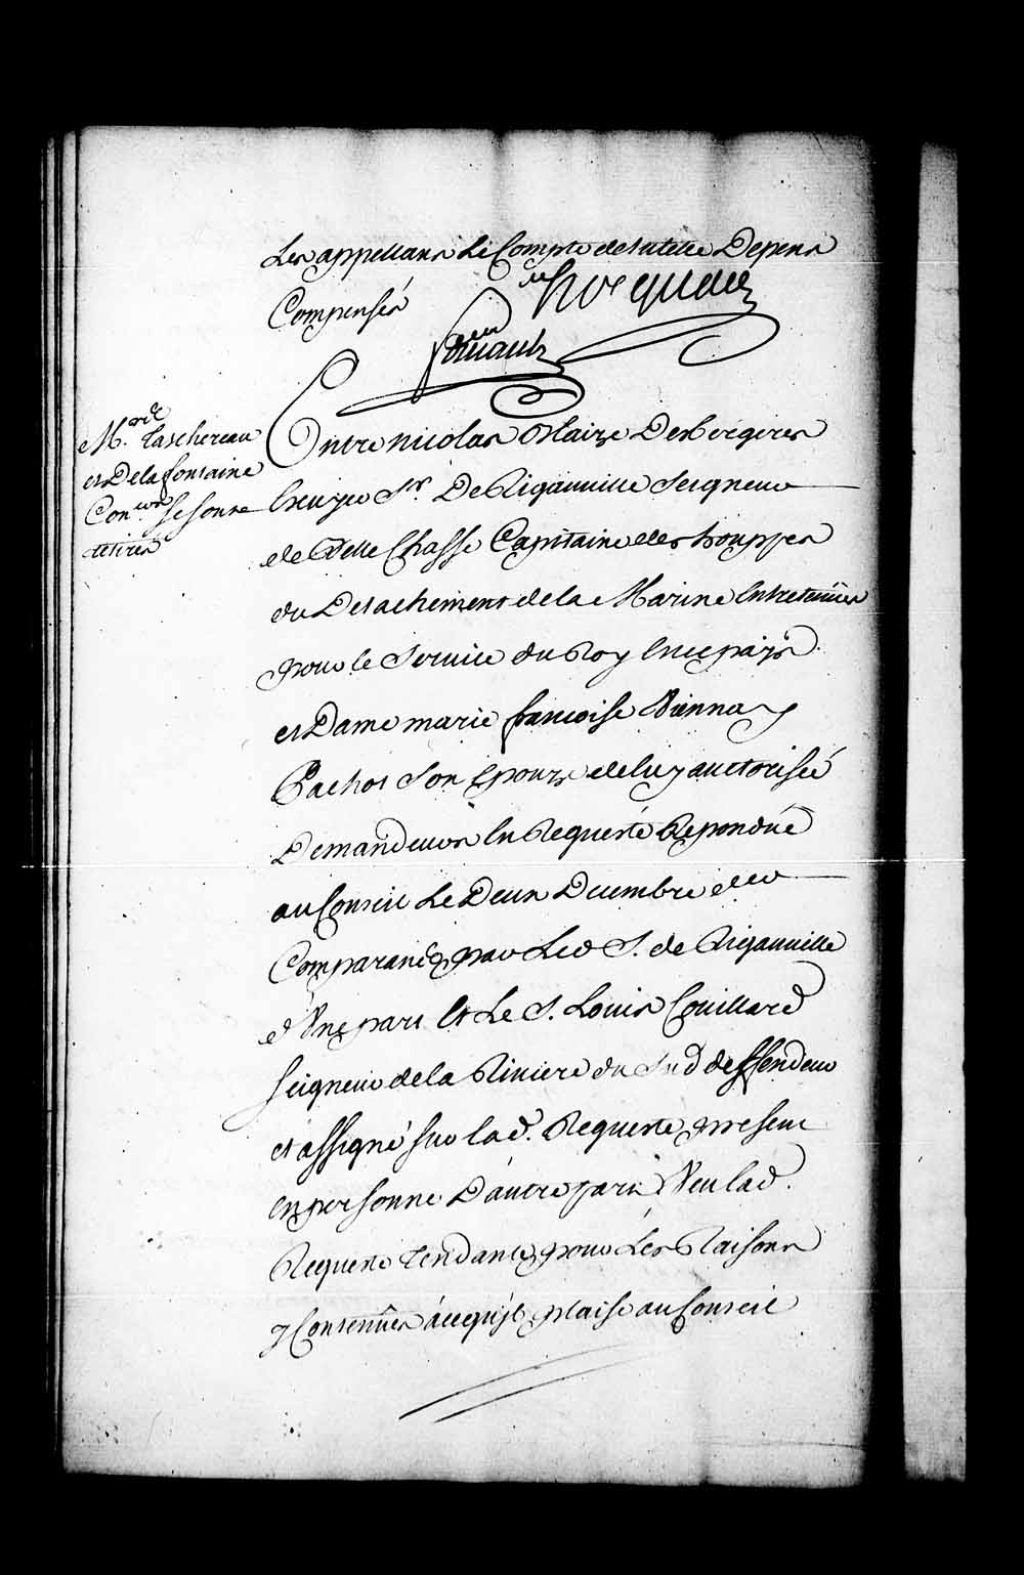 Les appellans Le Compte de tutelle Depens
Compensés
hocquart
foucault
Mrs. de
Taschereau
et Delafontaine
Coners. se sont
retirés
Entre nicolas Blaize Desbergeres
Ecuyer Sr. De Rigauuille Seigneur
de Belle Chasse Capitaine des trouppes
du Detachement de la Marine Entretenües
pour le Seruice du Roy En ce païs
et Dame marie francoise Viennay
Pachot Son Epouze de luy auctorisée
Demandeurs En Requeste Repondüe
au Conseil Le Deux Decembre der
Comparans par Led S. de Rigauuille
d'Une part Et Le S. Louis Couillard
Seigneur de la Riuiere du Sud deffendeur
et assigné sur lad. Requeste present
en personne D'autre part Veu lad.
Requeste tendante pour Les Raisons
y Contenües à ce qu'jl plaise au Conseil